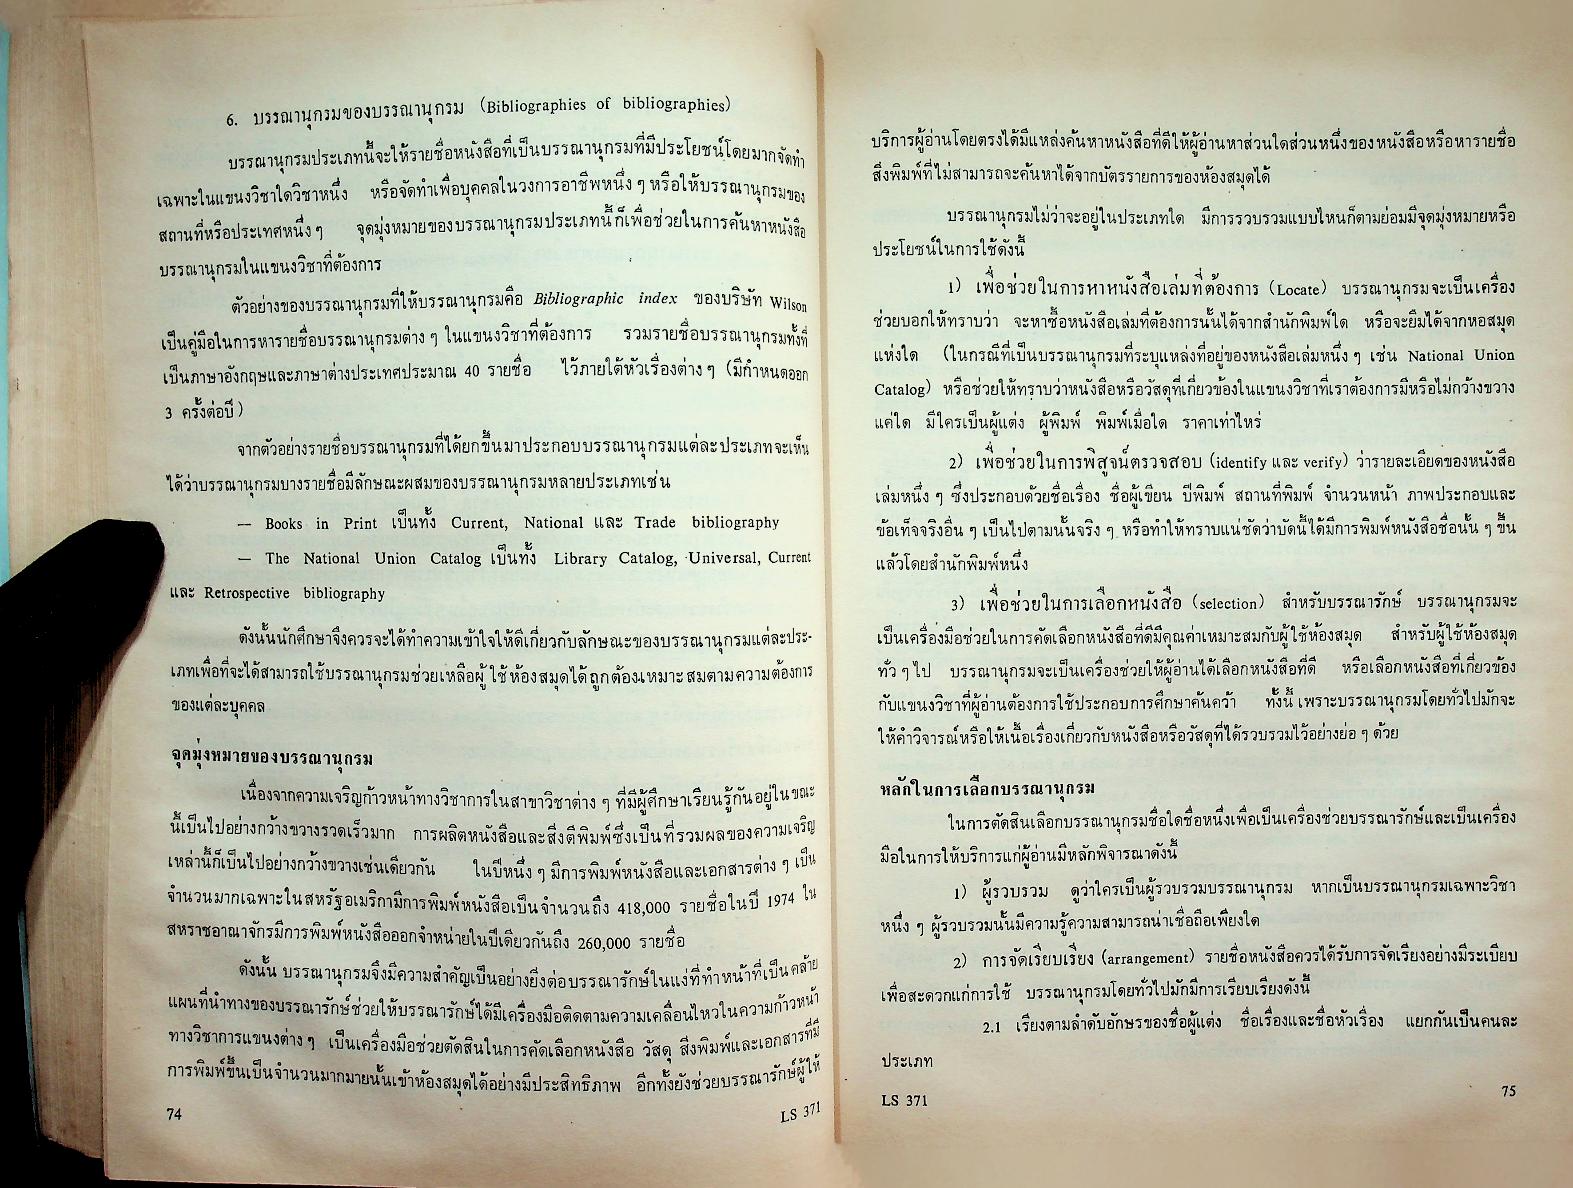 6. บรรณานุกรมของบรรณานุกรม (Bibliographies of bibliographies)
บรรณานุกรมประเภทนี้จะให้รายชื่อหนังสือที่เป็นบรรณานุกรมที่มีประโยชน์โดยมากจัดทำ
เฉพาะในแขนงวิชาใดวิชาหนึ่ง หรือจัดทำเพื่อบุคคลในวงการอาชีพหนึ่ง ๆ หรือให้บรรณานุกรมของ
สถานที่หรือประเทศหนึ่ง ๆ จุดมุ่งหมายของบรรณานุกรมประเภทนี้ก็เพื่อช่วยในการค้นหาหนังสือ
บรรณานุกรมในแขนงวิชาที่ต้องการ
ตัวอย่างของบรรณานุกรมที่ให้บรรณานุกรมคือ Bibliographic index ของบริษัท Wilson
เป็นคู่มือในการหารายชื่อบรรณานุกรมต่าง ๆ ในแขนงวิชาที่ต้องการ รวมรายชื่อบรรณานุกรมทั้งที่
เป็นภาษาอังกฤษและภาษาต่างประเทศประมาณ 40 รายชื่อ ไว้ภายใต้หัวเรื่องต่าง ๆ (มีกำหนดออก
3 ครั้งต่อปี)
จากตัวอย่างรายชื่อบรรณานุกรมที่ได้ยกขึ้นมาประกอบบรรณานุกรมแต่ละประเภทจะเห็น
ได้ว่าบรรณานุกรมบางรายชื่อมีลักษณะผสมของบรรณานุกรมหลายประเภทเช่น
— Books in Print เป็นทั้ง Current, National และ Trade bibliography
— The National Union Catalog เป็นทั้ง Library Catalog, Universal, Current
และ Retrospective bibliography
ดังนั้นนักศึกษาจึงควรจะได้ทำความเข้าใจให้ดีเกี่ยวกับลักษณะของบรรณานุกรมแต่ละประ-
เภทเพื่อที่จะได้สามารถใช้บรรณานุกรมช่วยเหลือผู้ใช้ห้องสมุดได้ถูกต้องเหมาะสมตามความต้องการ
ของแต่ละบุคคล
จุดมุ่งหมายของบรรณานุกรม
เนื่องจากความเจริญก้าวหน้าทางวิชาการในสาขาวิชาต่าง ๆ ที่มีผู้ศึกษาเรียนรู้กันอยู่ในขณะ
นี้เป็นไปอย่างกว้างขวางรวดเร็วมาก การผลิตหนังสือและสิ่งตีพิมพ์ซึ่งเป็นที่รวมผลของความเจริญ
เหล่านี้ก็เป็นไปอย่างกว้างขวางเช่นเดียวกัน ในปีหนึ่ง ๆ มีการพิมพ์หนังสือและเอกสารต่าง ๆ เป็น
จำนวนมากเฉพาะในสหรัฐอเมริกามีการพิมพ์หนังสือเป็นจำนวนถึง 418,000 รายชื่อในปี 1974 ใน
สหราชอาณาจักรมีการพิมพ์หนังสือออกจำหน่ายในปีเดียวกันถึง 260,000 รายชื่อ
ดังนั้น บรรณานุกรมจึงมีความสำคัญเป็นอย่างยิ่งต่อบรรณารักษ์ในแง่ที่ทำหน้าที่เป็นคล้าย
แผนที่นำทางของบรรณารักษ์ช่วยให้บรรณารักษ์ได้มีเครื่องมือติดตามความเคลื่อนไหวในความก้าวหน้า
ทางวิชาการแขนงต่าง ๆ เป็นเครื่องมือช่วยตัดสินในการคัดเลือกหนังสือ วัสดุ สิ่งพิมพ์และเอกสารที่มี
การพิมพ์ขึ้นเป็นจำนวนมากมายนั้นเข้าห้องสมุดได้อย่างมีประสิทธิภาพ อีกทั้งยังช่วยบรรณารักษ์ผู้ให้
74
LS 371
บริการผู้อ่านโดยตรงได้มีแหล่งค้นหาหนังสือที่ดีให้ผู้อ่านหาส่วนใดส่วนหนึ่งของหนังสือหรือหารายชื่อ
สิ่งพิมพ์ที่ไม่สามารถจะค้นหาได้จากบัตรรายการของห้องสมุดได้
บรรณานุกรมไม่ว่าจะอยู่ในประเภทใด มีการรวบรวมแบบไหนก็ตามย่อมมีจุดมุ่งหมายหรือ
ประโยชน์ในการใช้ดังนี้
1) เพื่อช่วยในการหาหนังสือเล่มที่ต้องการ (Locate) บรรณานุกรมจะเป็นเครื่อง
ช่วยบอกให้ทราบว่า จะหาซื้อหนังสือเล่มที่ต้องการนั้นได้จากสำนักพิมพ์ใด หรือจะยืมได้จากหอสมุด
แห่งใด (ในกรณีที่เป็นบรรณานุกรมที่ระบุแหล่งที่อยู่ของหนังสือเล่มหนึ่ง ๆ เช่น National Union
Catalog) หรือช่วยให้ทราบว่าหนังสือหรือวัสดุที่เกี่ยวข้องในแขนงวิชาที่เราต้องการมีหรือไม่กว้างขวาง
แค่ใด มีใครเป็นผู้แต่ง ผู้พิมพ์ พิมพ์เมื่อใด ราคาเท่าไหร่
2) เพื่อช่วยในการพิสูจน์ตรวจสอบ (identify และ verify) ว่ารายละเอียดของหนังสือ
เล่มหนึ่ง ๆ ซึ่งประกอบด้วยชื่อเรื่อง ชื่อผู้เขียน ปีพิมพ์ สถานที่พิมพ์ จำนวนหน้า ภาพประกอบและ
ข้อเท็จจริงอื่น ๆ เป็นไปตามนั้นจริง ๆ หรือทำให้ทราบแน่ชัดว่าบัดนี้ได้มีการพิมพ์หนังสือชื่อนั้น ๆ ขึ้น
แล้วโดยสำนักพิมพ์หนึ่ง
3) เพื่อช่วยในการเลือกหนังสือ (selection) สำหรับบรรณารักษ์ บรรณานุกรมจะ
เป็นเครื่องมือช่วยในการคัดเลือกหนังสือที่ดีมีคุณค่าเหมาะสมกับผู้ใช้ห้องสมุด สำหรับผู้ใช้ห้องสมุด
ทั่ว ๆ ไป บรรณานุกรมจะเป็นเครื่องช่วยให้ผู้อ่านได้เลือกหนังสือที่ดี หรือเลือกหนังสือที่เกี่ยวข้อง
กับแขนงวิชาที่ผู้อ่านต้องการใช้ประกอบการศึกษาค้นคว้า ทั้งนี้ เพราะบรรณานุกรมโดยทั่วไปมักจะ
ให้คำวิจารณ์หรือให้เนื้อเรื่องเกี่ยวกับหนังสือหรือวัสดุที่ได้รวบรวมไว้อย่างย่อ ๆ ด้วย
หลักในการเลือกบรรณานุกรม
ในการตัดสินเลือกบรรณานุกรมชื่อใดชื่อหนึ่งเพื่อเป็นเครื่องช่วยบรรณารักษ์และเป็นเครื่อง
มือในการให้บริการแก่ผู้อ่านมีหลักพิจารณาดังนี้
1) ผู้รวบรวม ดูว่าใครเป็นผู้รวบรวมบรรณานุกรม หากเป็นบรรณานุกรมเฉพาะวิชา
หนึ่ง ๆ ผู้รวบรวมนั้นมีความรู้ความสามารถน่าเชื่อถือเพียงใด
2) การจัดเรียบเรียง (arrangement) รายชื่อหนังสือควรได้รับการจัดเรียงอย่างมีระเบียบ
เพื่อสะดวกแก่การใช้ บรรณานุกรมโดยทั่วไปมักมีการเรียบเรียงดังนี้
2.1 เรียงตามลำดับอักษรของชื่อผู้แต่ง ชื่อเรื่องและชื่อหัวเรื่อง แยกกันเป็นคนละ
ประเภท
LS 371
75